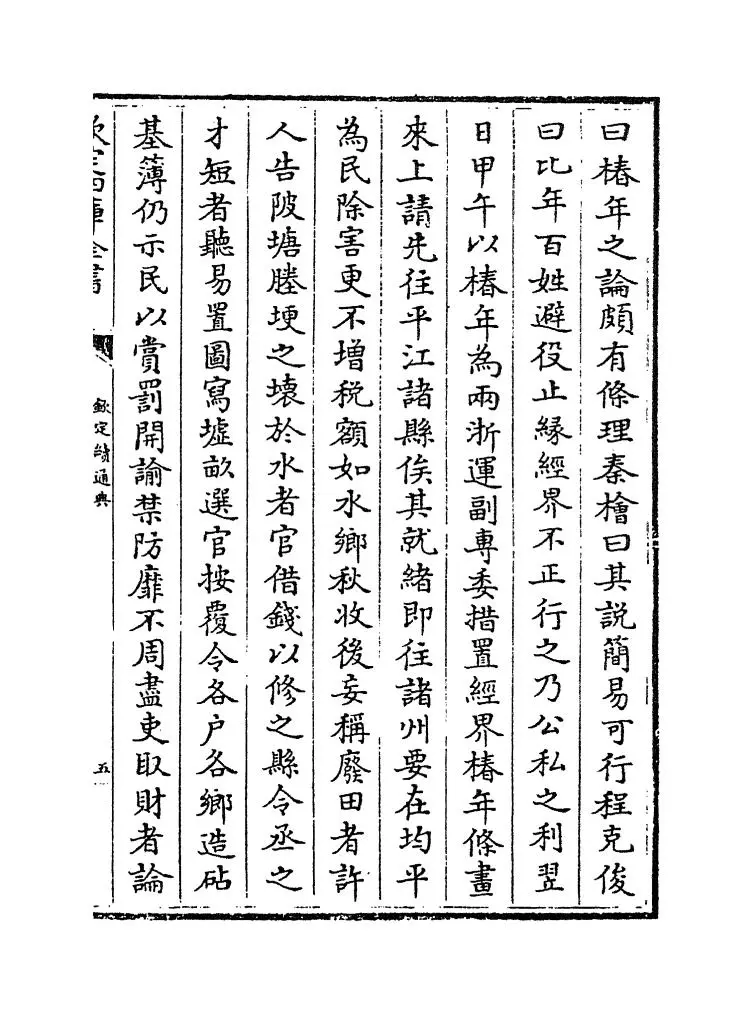 曰椿年之論頗有條理秦檜曰其説簡易可行程克俊
曰比年百姓避役止緣經界不正行之乃公私之利翌
日甲午以椿年為兩浙運副專委措置經界椿年條畫
來上請先往平江諸縣俟其就緒即往諸州要在均平
為民除害更不增税額如水鄉秋收後妄稱廢田者許
人告陂塘塍埂之壊於水者官借錢以修之縣令丞之
才短者聽易置圖寫墟畝選官按覆令各户各鄉造砧
基薄仍示民以賞罰開諭禁防靡不周盡吏取財者論
欽定四庫全書
欽定續通典
五